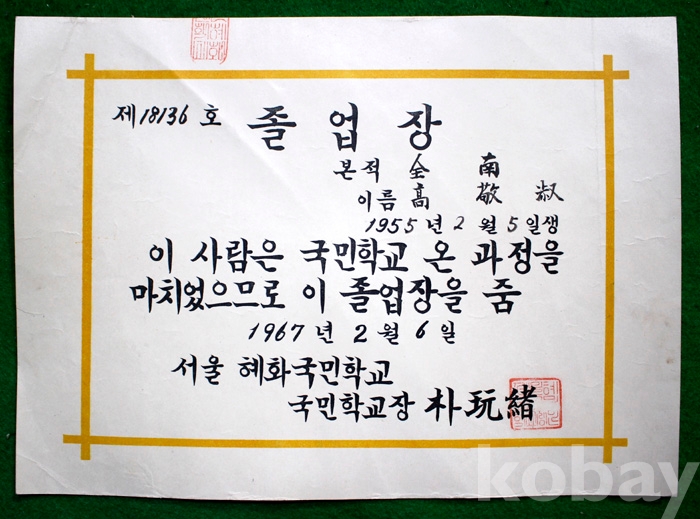 제18136호 졸업장
본적 全南
이름 高敬淑
1955년 2월 5일생
이 사람은 국민학교 온 과정을
마치었으므로 이 졸업장을 줌
1967년 2월 6일
서울 혜화국민학교
국민학교장 朴玩緖
kobay